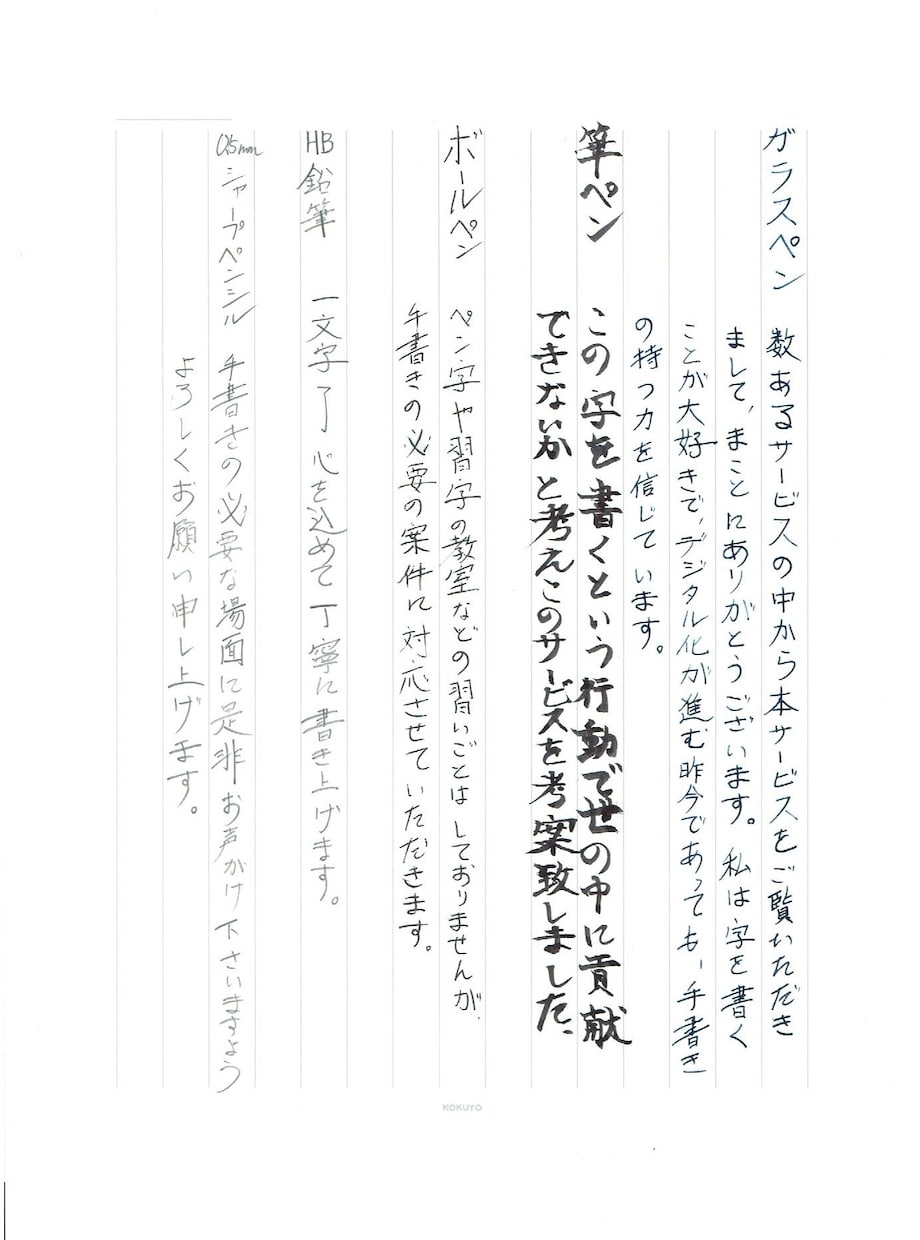 ガラスペン 数あるサービスの中から本サービスをご覧いただき
まして、まことにありがとうございます。私は字を書く
ことが大好きで、デジタル化が進む昨今であっても、手書き
の持つ力を信じています。
筆ペン この字を書くという行動で世の中に貢献
できないかと考えこのサービスを考案致しました、
ボールペン ペン字や習字の教室などの習いごとはしておりませんが、
手書きの必要の案件に対応させていただきます。
HB鉛筆 一文字了心を込めて丁寧に書き上げます。
0.5mmシャープペンシル 手書きの必要な場面に是非お声がけ下さいますよう
よろしくお願い申し上げます。
KOKUYO